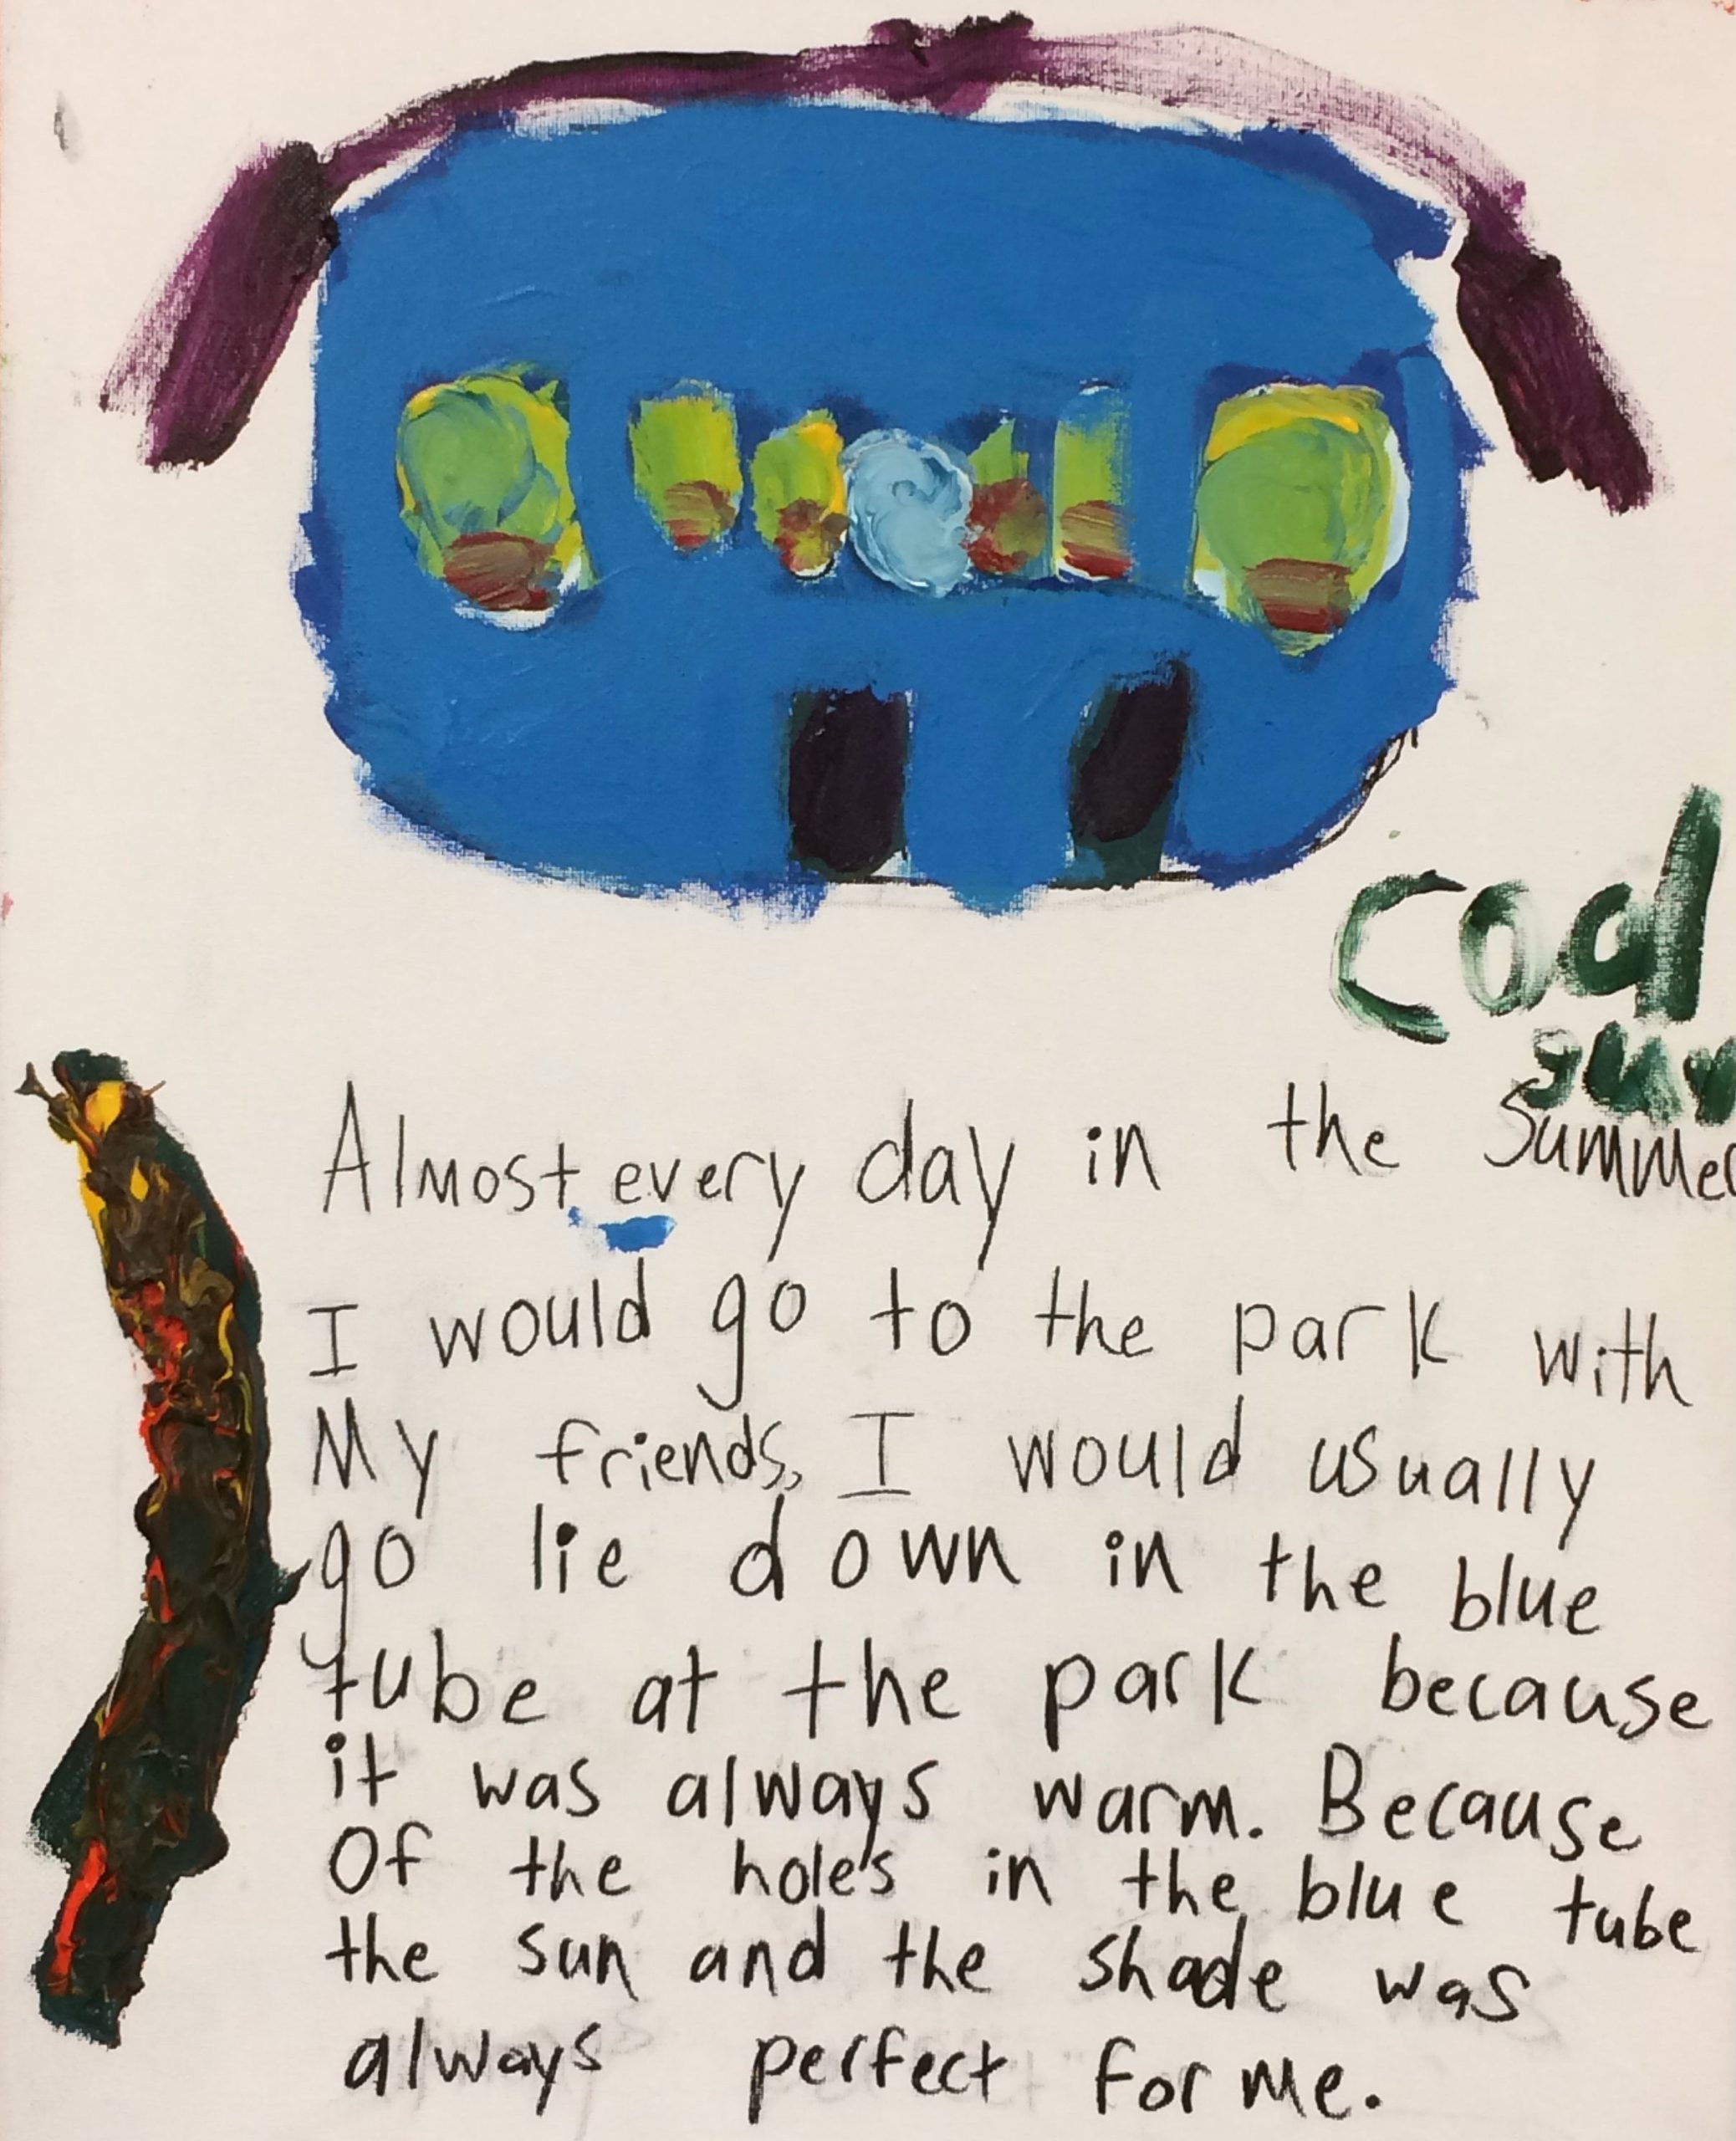 Almost every day in the Summer
I would go to the park with
My friends, I would usually
go lie down in the blue
tube at the park because
it was always warm. Because
Of the holes in the blue tube
the sun and the shade was
always perfect for me.